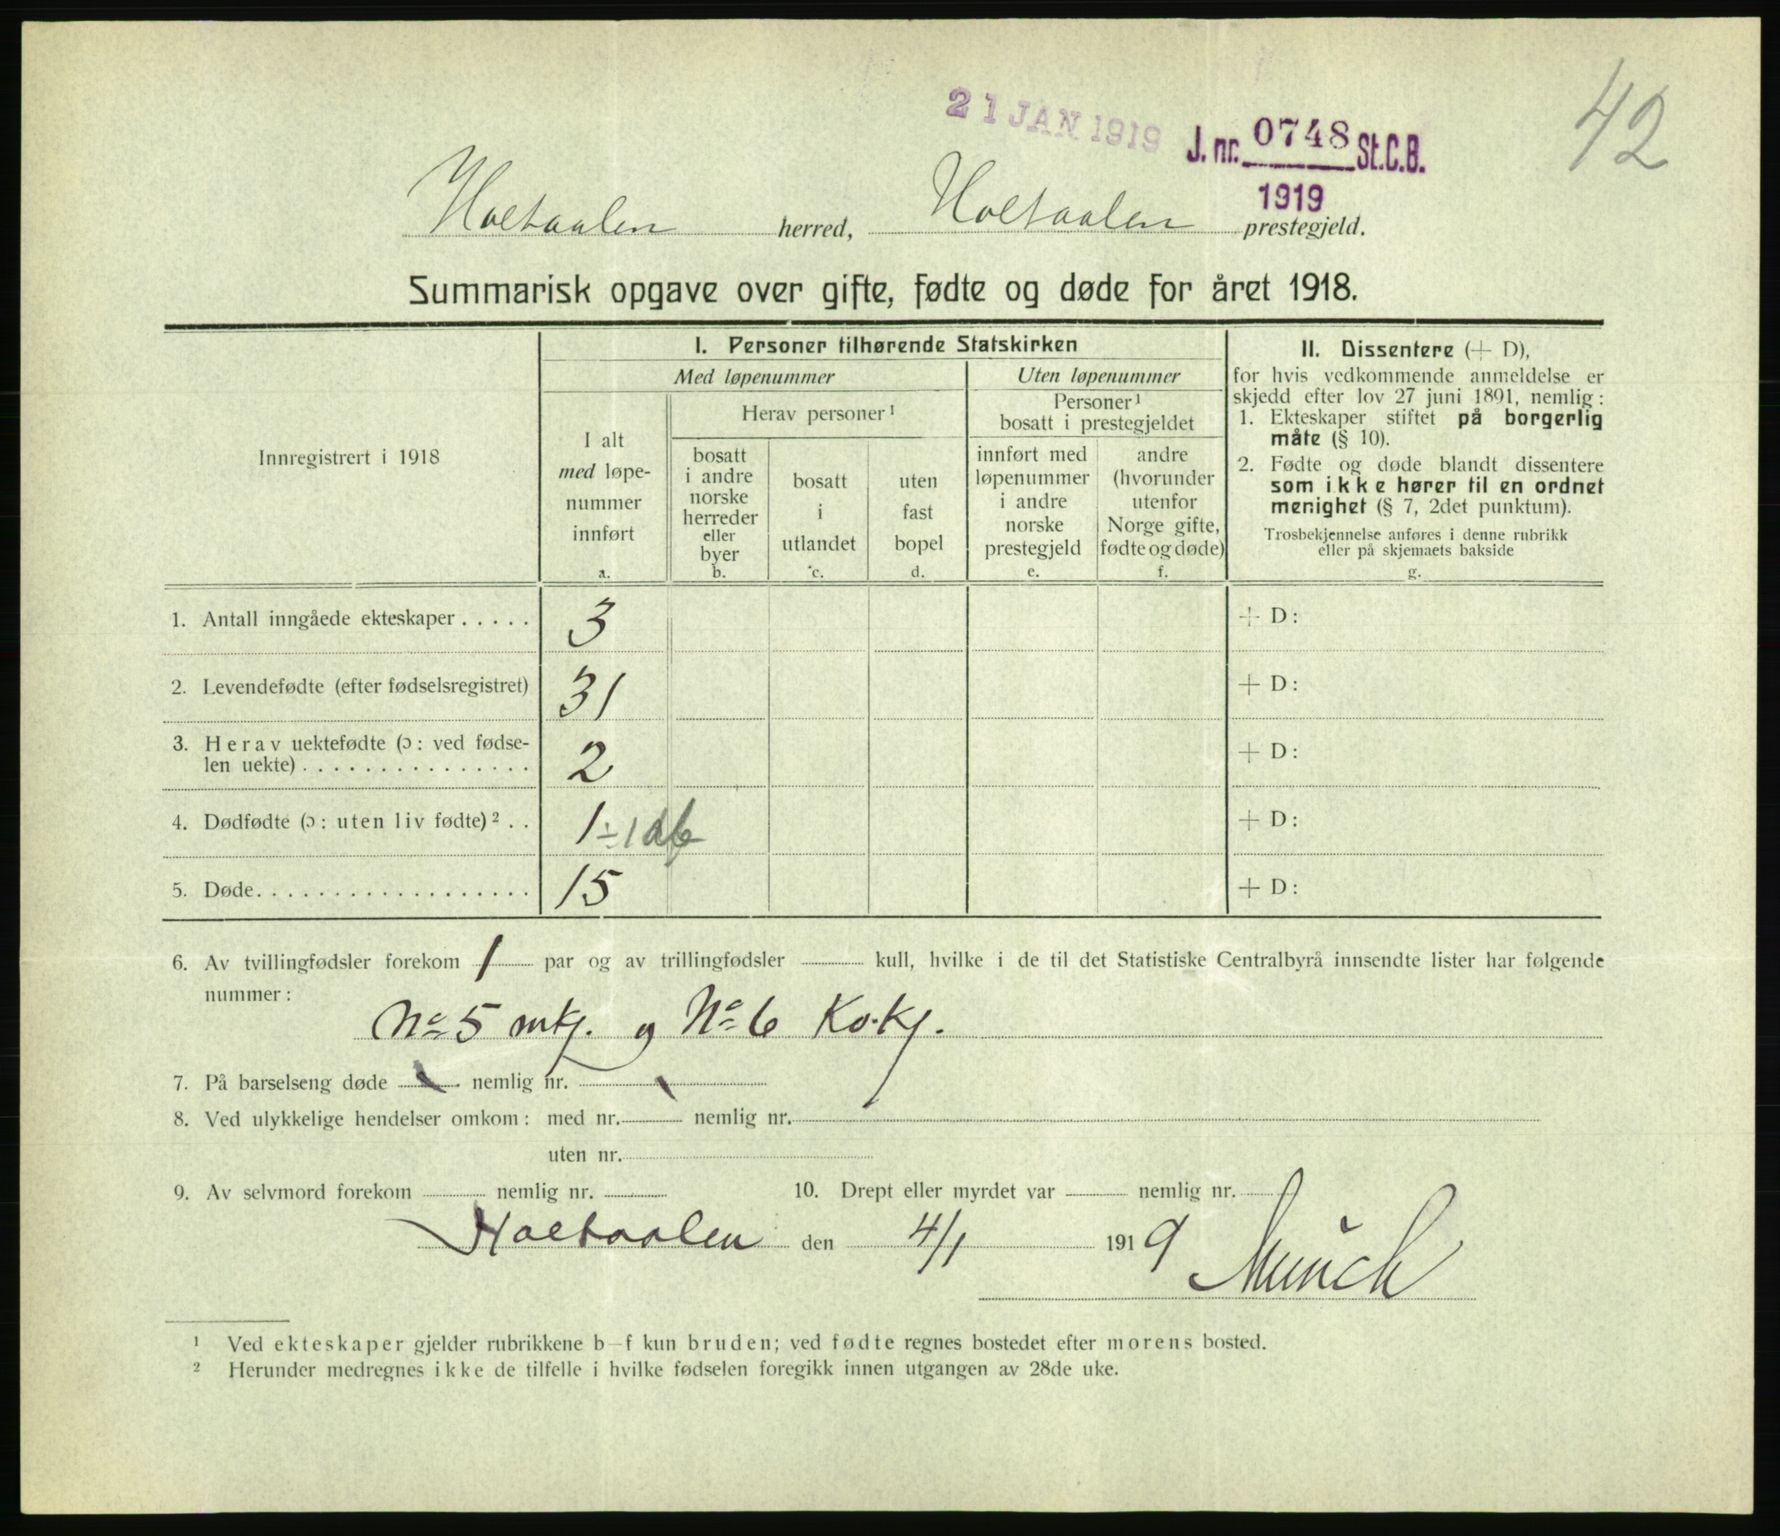 42
21 JAN 1919
J. nr. 0748 St.C.B.
1919
Holtaalen herred, Holtaalen prestegjeld.
Summarisk opgave over gifte, fødte og døde for året 1918.
Innregistrert i 1918
I. Personer tilhørende Statskirken
Med løpenummer
Uten løpenummer
I alt
med løpe-
nummer
innført
a.
Herav personer ¹
bosatt
i andre
norske
herreder
eller
byer
b.
bosatt
i
utlandet
c.
uten
fast
bopel
d.
Personer ¹
bosatt i prestegjeldet
innført med
løpenummer
i andre
norske
prestegjeld
e.
andre
(hvorunder
utenfor
Norge gifte,
fødte og døde)
f.
II. Dissentere (+ D),
for hvis vedkommende anmeldelse er
skjedd efter lov 27 juni 1891, nemlig:
1. Ekteskaper stiftet på borgerlig
måte (§ 10).
2. Fødte og døde blandt dissentere
som ikke hører til en ordnet
menighet (§ 7, 2det punktum).
Trosbekjennelse anføres i denne rubrikk
eller på skjemaets bakside
g.
1. Antall inngåede ekteskaper ..... 3 + D:
2. Levendefødte (efter fødselsregistret) 31 + D:
3. Herav uektefødte (ɔ: ved fødse-
len uekte) ............... 2 + D:
4. Dødfødte (ɔ: uten liv fødte) ² .. 1 ÷ 1 + D:
5. Døde .................. 15 + D:
6. Av tvillingfødsler forekom 1 par og av trillingfødsler kull, hvilke i de til det Statistiske Centralbyrå innsendte lister har følgende
nummer:
No 5 mkj. og No 6 Kv.kj.
7. På barselseng døde nemlig nr.
8. Ved ulykkelige hendelser omkom: med nr. nemlig nr.
uten nr.
9. Av selvmord forekom nemlig nr. 10. Drept eller myrdet var nemlig nr.
Holtaalen den 4/1 1919
Münch
¹ Ved ekteskaper gjelder rubrikkene b–f kun bruden; ved fødte regnes bostedet efter morens bosted.
² Herunder medregnes ikke de tilfelle i hvilke fødselen foregikk innen utgangen av 28de uke.